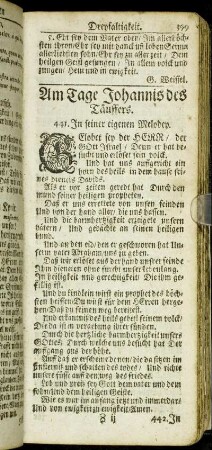 Dreyfaltigkeit. 399
5. Ehr sey dem Vater oben / Im allerhöch-
sten thron / Ehr sey auch
allerliebsten sohn. Ehr sey zu aller zeit / Dem
heiligen Geist gesungen / In allem volck und
zungen / Hein und in ewigkeit.
G. Weissel.
Am Tage Johannis des
Täuffers.
441. In seiner eigenen Melodey.
GElobet sey der HERR / der
GOtt Israel / Denn er hat be-
sucht und erlöset sein volck.
Und hat uns auffgericht ein
horn des heils in dem hause sei-
nes dieners Davids.
Als er vor zeiten geredt hat Durch den
mund seiner heiligen propheten.
Daß er uns errettete von unsern feinden
Und von der hand aller / die uns hassen.
Und die barmhertzigkeit erzeigete unsern
vätern / Und gedächte an seinen heiligen
bund.
Und an den eid / den er geschworen hat Un-
serm vater Abraham uns zu geben.
Daß wir erlöset aus der hand unser feinde
Ihm dieneten ohne furcht unser lebenlang.
In heiligkeit und gerechtigkeit Die ihm ge-
fällig ist.
Und du kindlein wirst ein prophet des höch-
sten heissen / Du wirst für dem HErren hergehen
Daß du seinen weg bereitest.
Und erkäntnis des heils gebest seinem volck /
Die da ist in vergebung ihrer sünden.
Durch die hertzliche barmhertzigkeit unsers
GOttes / Durch welche uns besucht hat Der
auffgang aus der höhe.
Auff daß er erscheine denen / die da sitzen im
finsternis und schatten des todes / Und richte
unsere füsse auff den weg des friedes.
Lob und preis sey Gott dem vater und dem
sohn / und dem heiligen Geiste.
Wie es war im anfang jetzt und immerdar
Und von ewigkeit zu ewigkeit / Amen.
Z ij 442. In